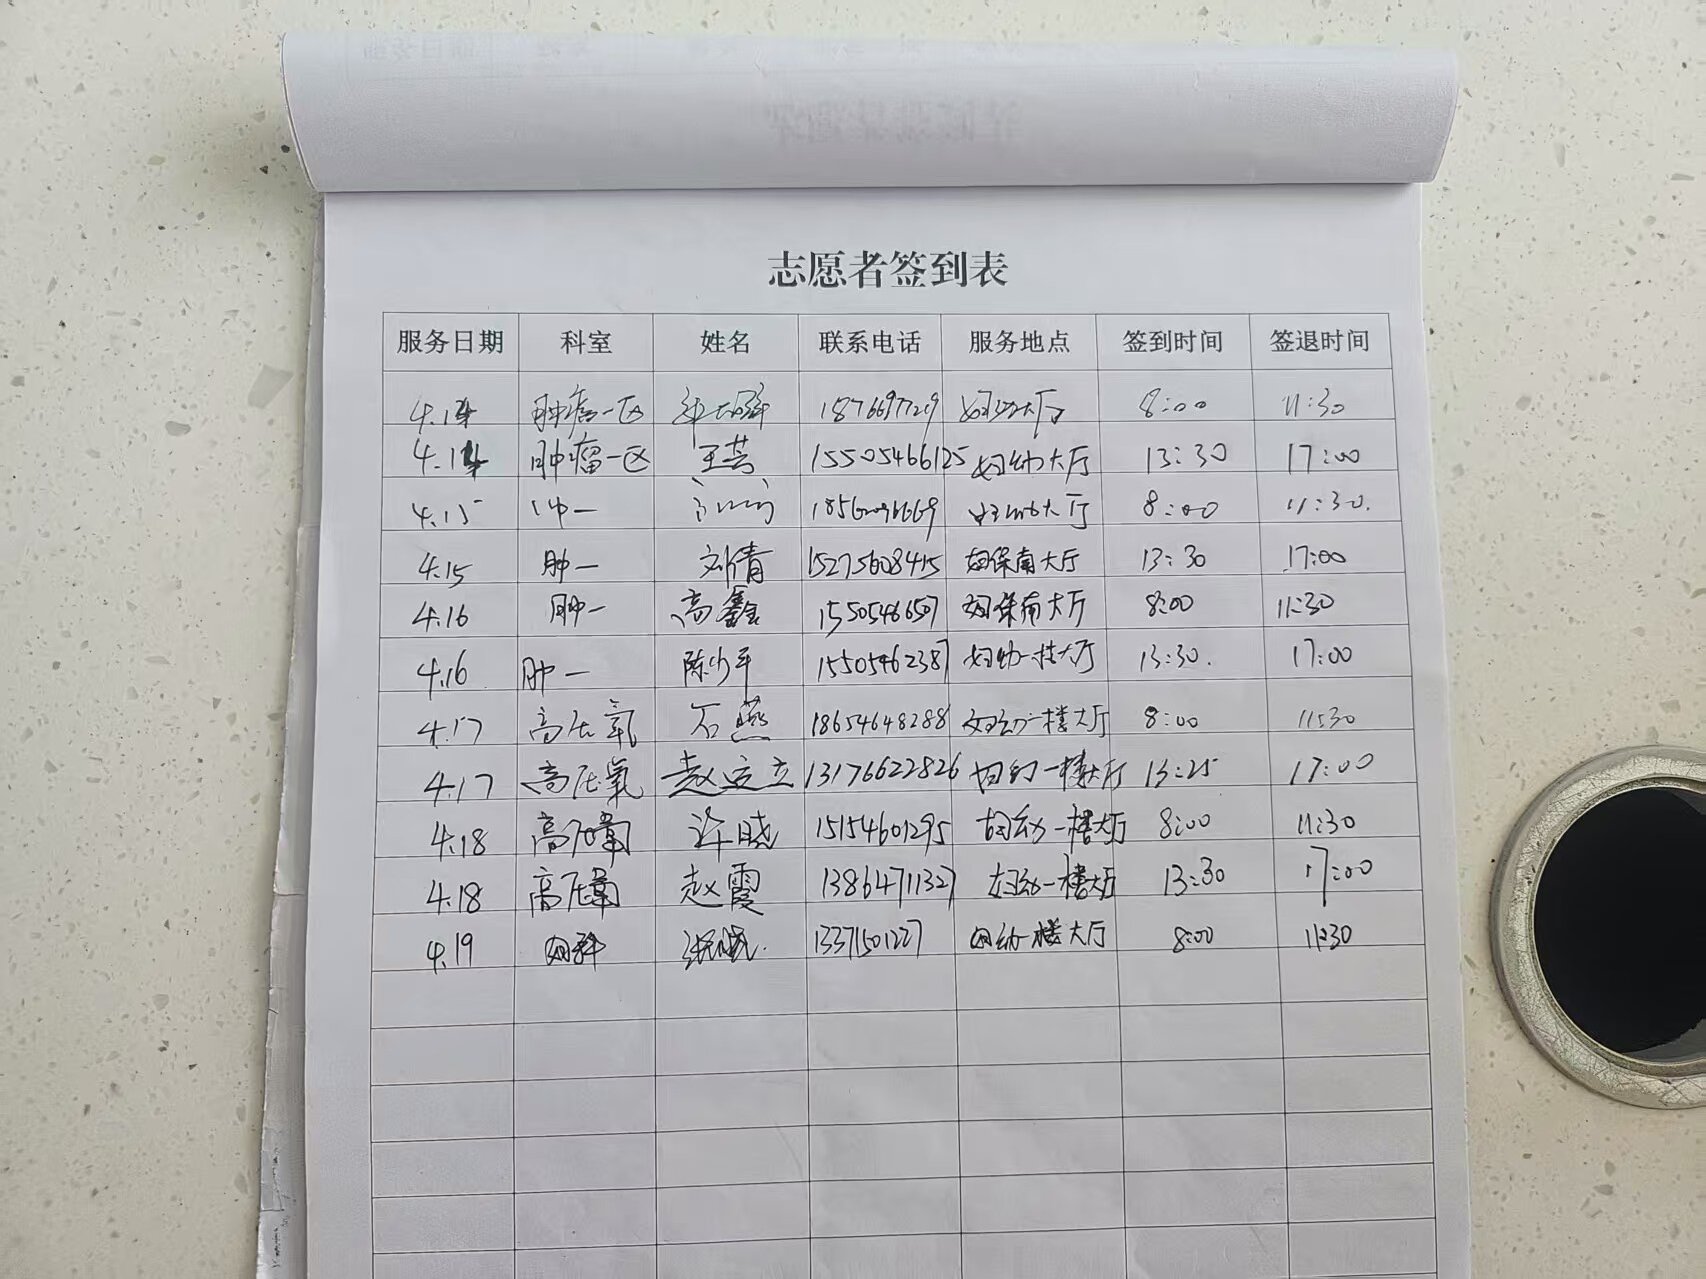 志愿者签到表
服务日期 科室 姓名 联系电话 服务地点 签到时间 签退时间
4.14 肿瘤一区 妇幼大厅 8:00 11:30
4.14 肿瘤一区 王芸 15505466125 妇幼大厅 13:30 17:00
4.15 肿一 大厅 8:00 11:30.
4.15 肿一 刘倩 15275608415 妇保南大厅 13:30 17:00
4.16 肿一 高鑫 妇保南大厅 8:00 11:30
4.16 肿一 陈少平 15505462387 妇幼一楼大厅 13:30. 17:00
4.17 高压氧 石燕 18654648288 妇幼一楼大厅 8:00 11:30
4.17 高压氧 赵定立 13176622826 妇幼一楼大厅 13:25 17:00
4.18 高压氧 许晓 15154601295 妇幼一楼大厅 8:00 11:30
4.18 高压氧 赵霞 13864711327 妇幼一楼大厅 13:30 17:00
4.19 妇科 13371501227 妇幼一楼大厅 8:00 11:30